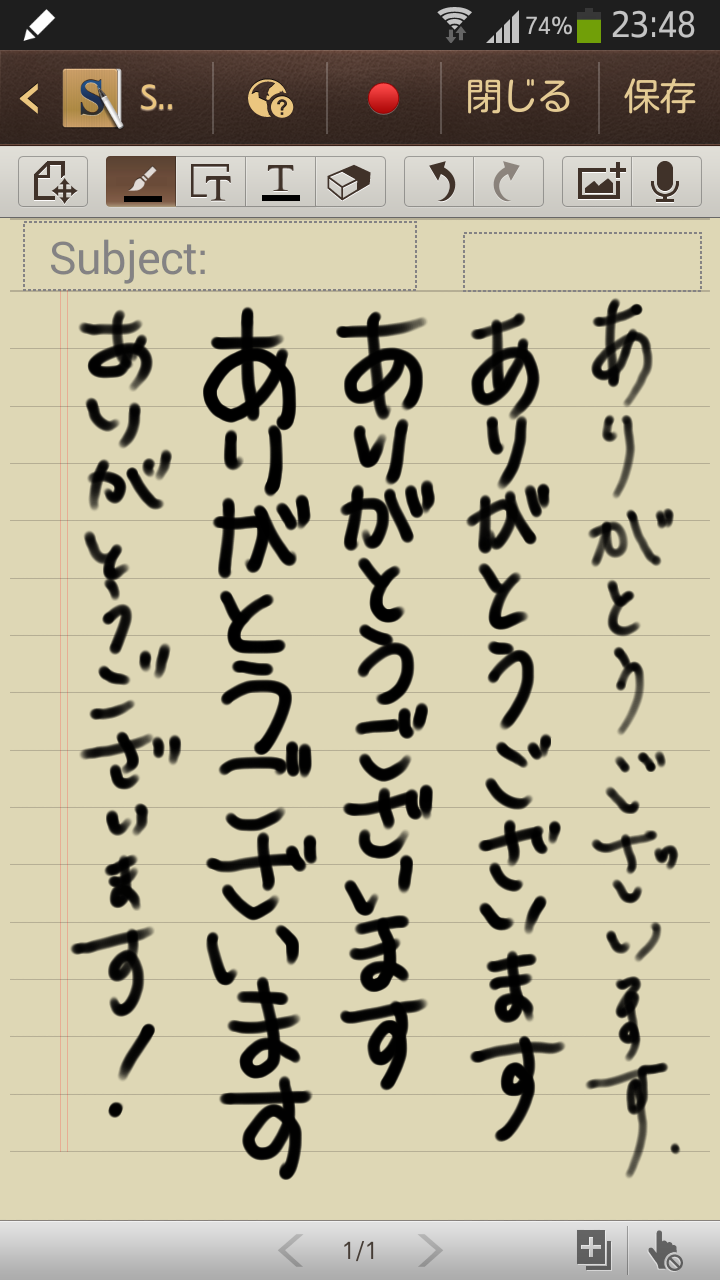 74% 23:48
S.. 閉じる 保存
Subject:
ありがとうございます.
ありがとうございます
ありがとうございます
ありがとうございます
ありがとうございます!
1/1